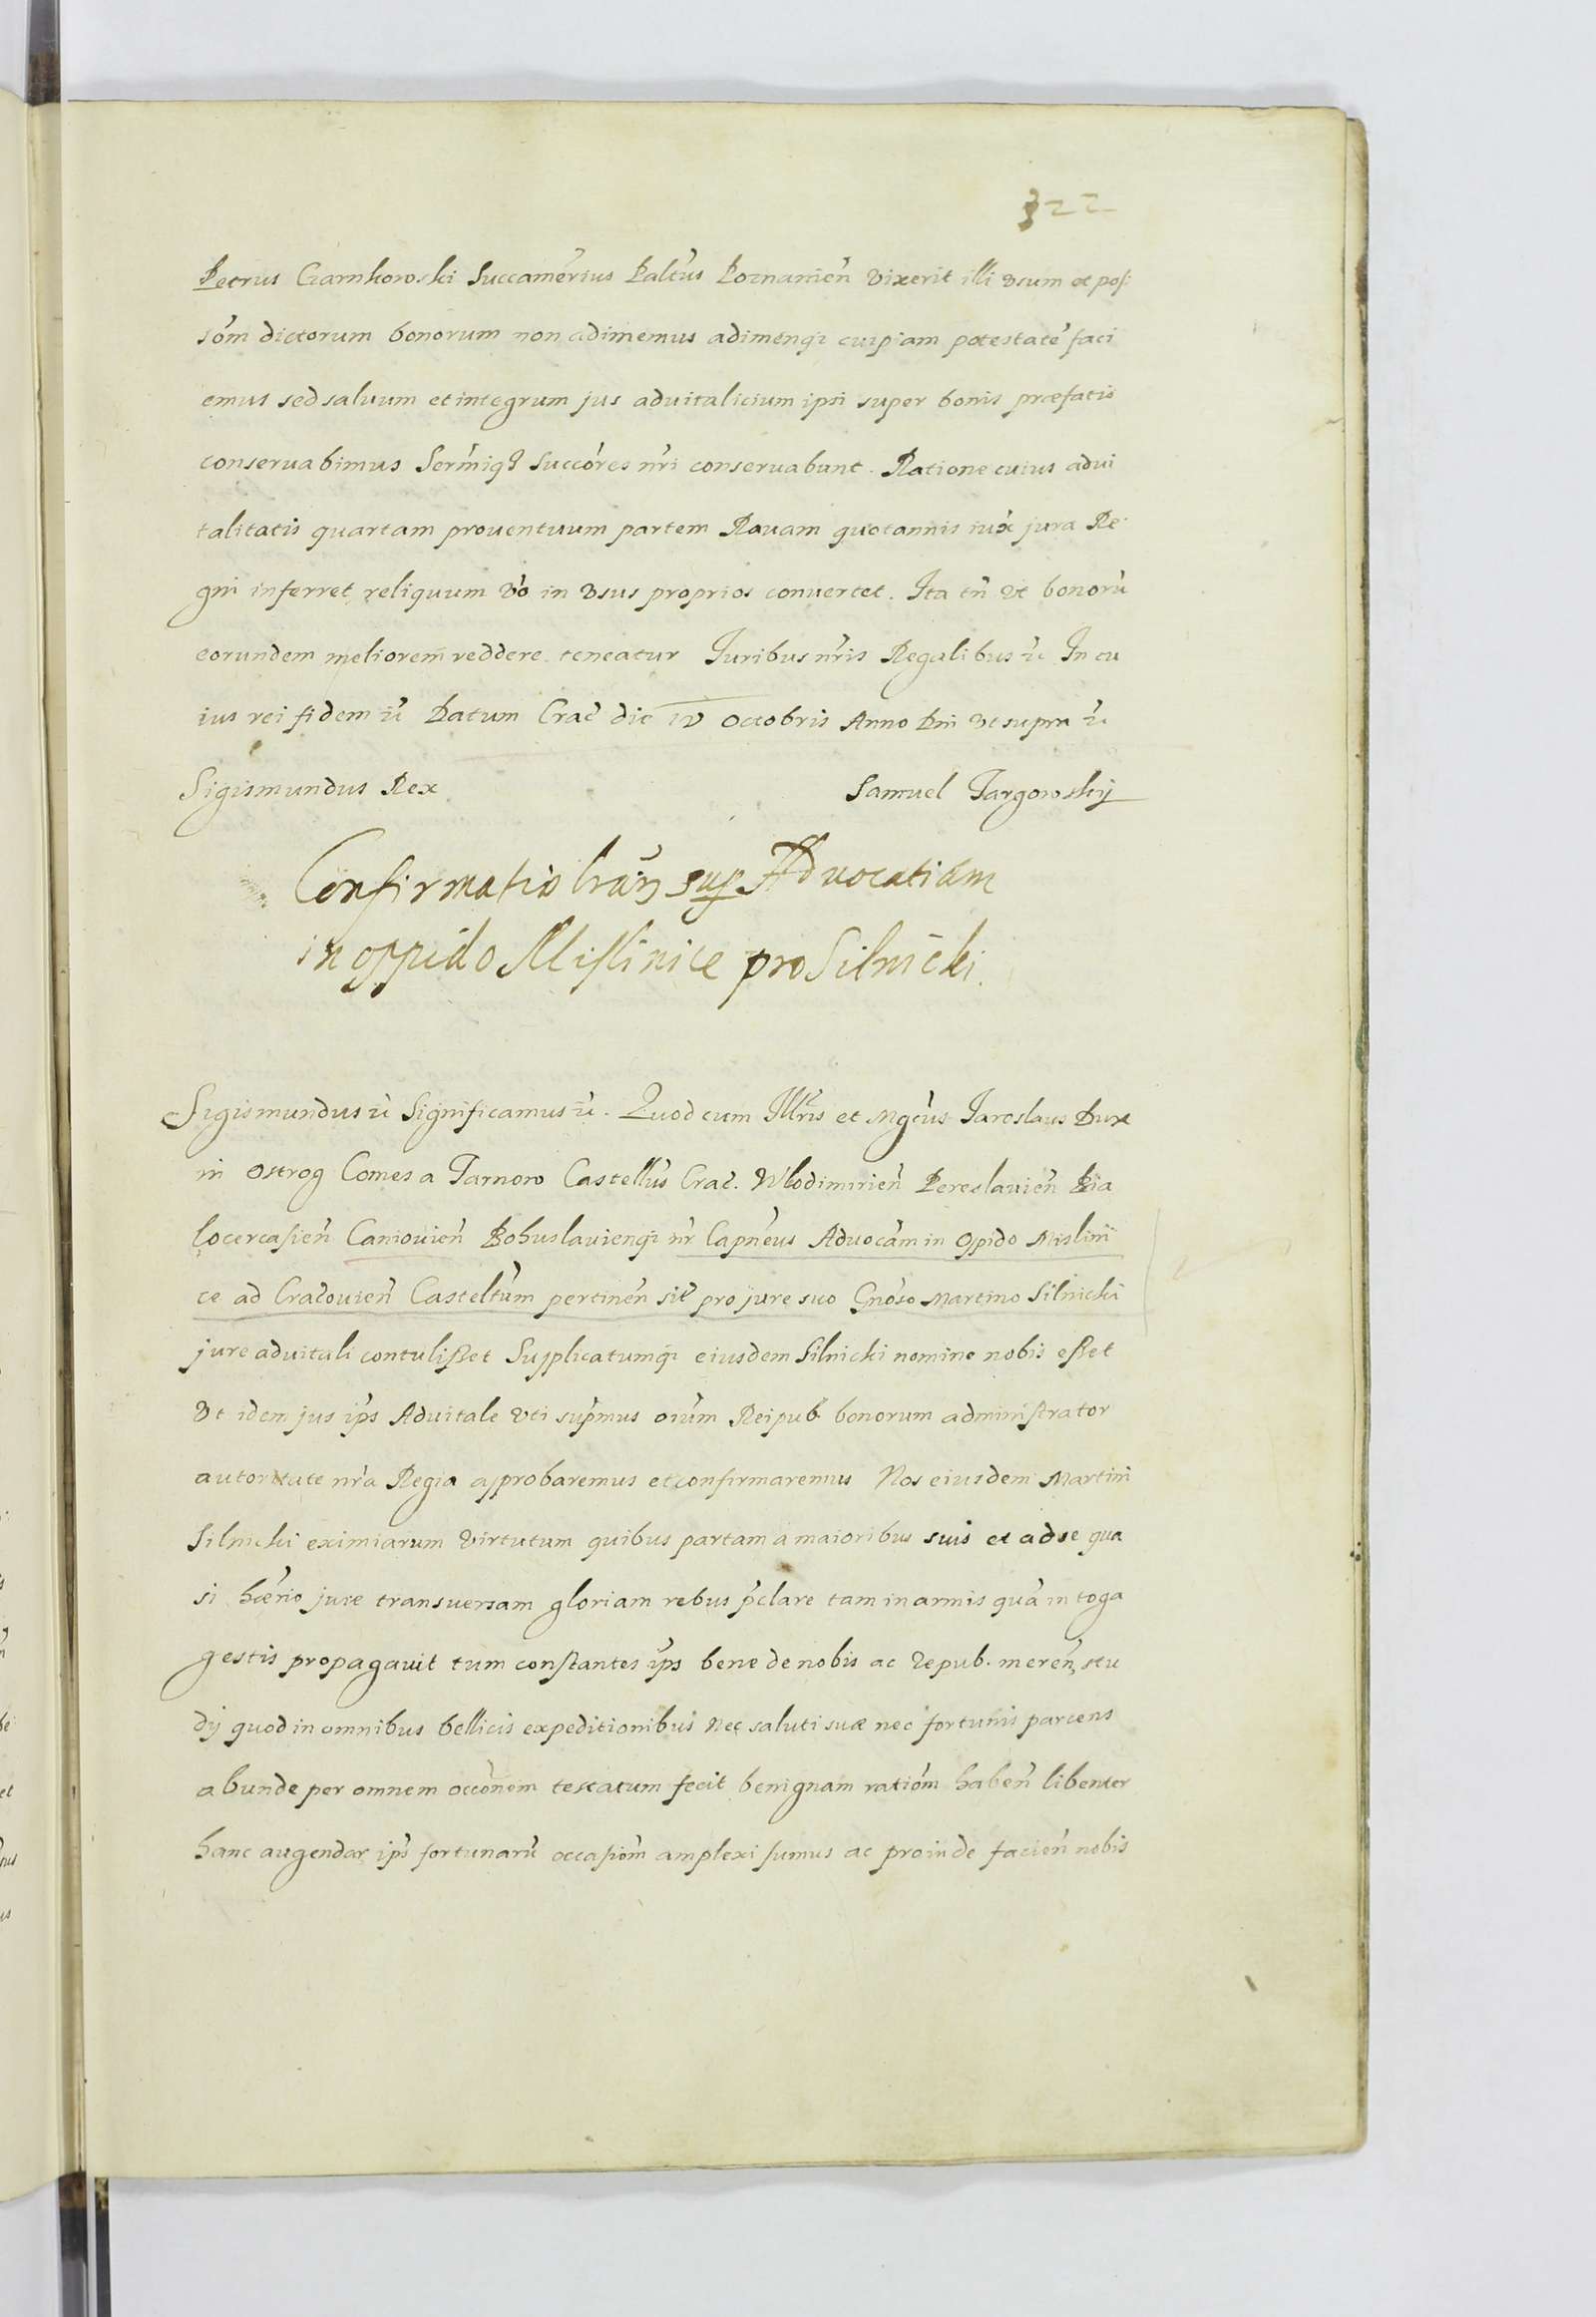 322
Petrus Czarnkowski Succamer̃ius Palt̃us Poznanień vixerit illi vsum et pos:
som̃ dictorum bonorum non adimemus adimenq3 cuipiam potestatẽ faci
emus sed saluum et integrum jus aduitalicium ipsi super bonis præfatis
conseruabimus Serm̃iq3 Succõres nr̃i conseruabunt. Ratione cuius adui
talitatis quartam prouentuum partem Rauam quotannis iux̃ jura Re
gni inferret reliquum vo᷃ in vsus proprios conuertet. Ita tñ vt bonorũ
eorundem meliorem̃ reddere teneatur Iuribus nr̃is Regalibus &c In cu
ius rei fidem &c Datum Crac̃ die IV Octobris Anno Dni vt supra &c
Sigismundus Rex Samuel Targowskij
Confirmatio lrar̃ sup Aduocatiam
in oppido Mislinice pro Silnicki.
Sigismundus &c Significamus &c. Quod cum Illr̃is et Mgc̃us Iaroslaus Dux
in Ostrog Comes a Tarnow Castellũs Crac̃. Wlodimirień Pereslauień Bia
locercasień Caniouień Bohuslauienq3 nr̃ Capnẽus Aduocãm in Opido Mislini
ce ad Cracouień Casteltũm pertineñ sił pro jure suo Gnõso Martino Silnicki
jure aduitali contulisset Supplicatumq3 eiusdem Silnicki nomine nobis esset
Vt idem jus ip̃s Aduitale vti sup̃mus oiũm Reipub bonorum administrator
autoritate nr̃a Regia approbaremus et confirmaremus Nos eiusdem Martini
Silnicki eximiarum virtutum quibus partam a maioribus suis et ad se qua
si hær̃io jure transuersam gloriam rebus p̃clare tam in armis quã in toga
gestis propagauit tum constantes ip̃s bene de nobis ac repub. mereñ stu
dij quod in omnibus bellicis expeditionibus nec saluti suæ nec fortunis parcens
abunde per omnem occõnem testatum fecit benignam ratiom̃ habeñ libenter
hanc augendar ip̃s fortunarũ occasiom̃ amplexi sumus ac proinde facień nobis